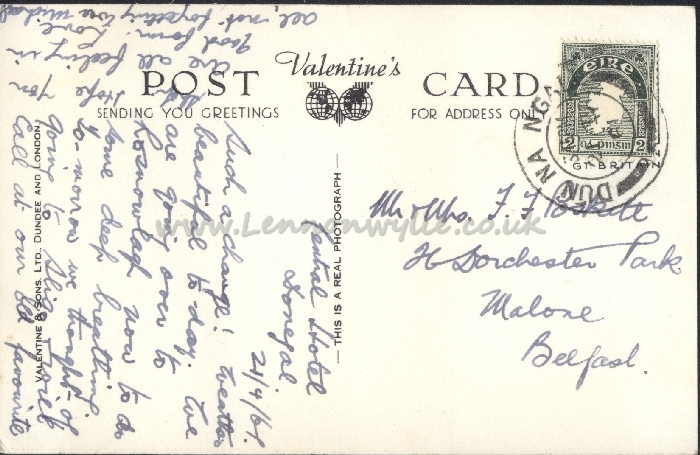 POST Valentine's CARD
SENDING YOU GREETINGS
FOR ADDRESS ONLY
ÉIRE
2 2
DÚN NA NGALL
GT. BRITAIN
THIS IS A REAL PHOTOGRAPH
VALENTINE & SONS, LTD., DUNDEE AND LONDON
www.Lennonwylie.co.uk
Mr & Mrs. F. J.
Dorchester Park
Malone
Belfast.
Central Hotel
Donegal
21/4/61.
Such a change! weather
beautiful to-day. We
are going over to
Rosnowlagh now to do
some deep breathing
to-morrow we thought of
going to Sligo & will
call at our old favourite
Hope you
are all feeling in
good form. Love
all, not forgetting